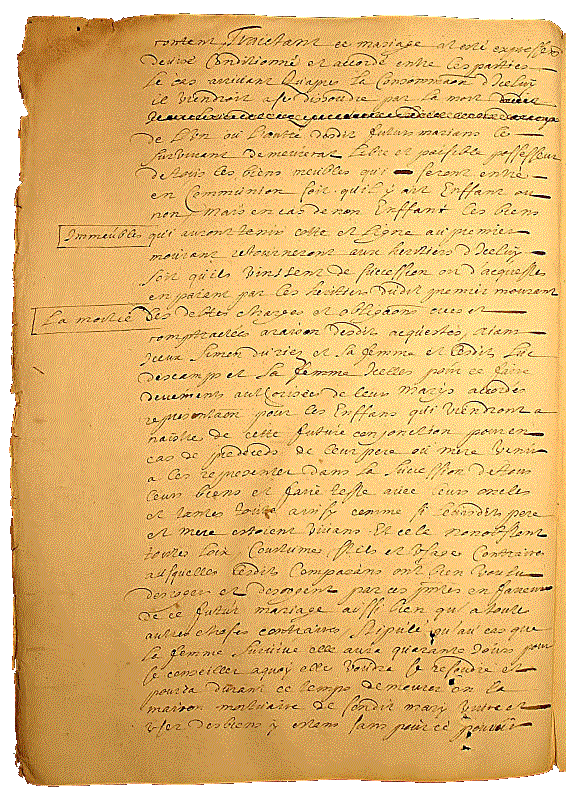 content Traictant ce mariage at esté expressem
devisé Conditionné et accordé entre les parties
le cas arrivant Quapres la Consommaon d'Iceluy
il viendroit a se dissoudre par la mort
de L'un ou L'autre desdit futurs marians le
survivant demeurerat Libre et paisible possesseur
de tous les biens meubles qui seront entré
en Communion soit qu'il y ait Enffant ou
non Mais en cas de non Enffant les biens
Immeubles qui auront tenus cotte et Ligne au premier
mourant retourneront aux heritiers d'Iceluy
soit qu'ils vinssent de succession ou d'acqueste
en paiant par les heritiers dudit premier mourant
La moitié des debtes charges et obligaons eues et
comptractées a raison desdits acquestes, aiant
Iceux Simon du ries et sa femme et lesdits Luc
descamps et sa femme Icelles pour ce faire
deuement authorisées de leurs marys accordés
representaon pour les Enffans qui viendront a
naistre de cette future conjonction pour en
cas de predeces de leur pere ou mere venir
a les representer dans la succession de tous
leurs biens et faire teste avec leurs oncles
et tantes tout ainsy comme si leursdits pere
et mere estoient vivans Et cela nonobstant
touttes Loix Coustumes stils et usages Contraires
ausquelles lesdits Comparans ont bien voulu
deroger et derogent par ces pntes en faveur
de ce futur mariage aussi bien qu'a toute
autres choses contraires, Stipulé qu'au cas que
la femme Survive elle aura quarante Jours pour
se conseiller a quoy elle voudra se resoudre et
pourra durant ce temps demeurer en la
maison mortuaire de sondit mary vivre et
User des biens y estans sans pour ce pouvoir